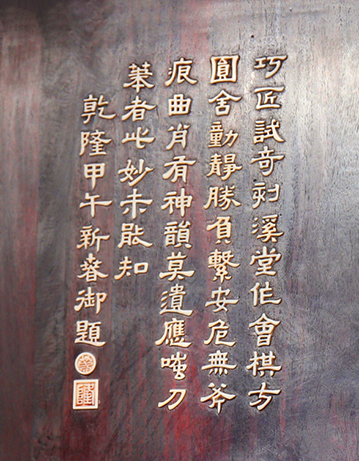 巧匠試奇剜溪堂作會棋方
圓舍動靜勝負繫安危無斧
痕曲肖有神韻莫遺應嗤刀
筆者此妙未能知
乾隆甲午新春御題